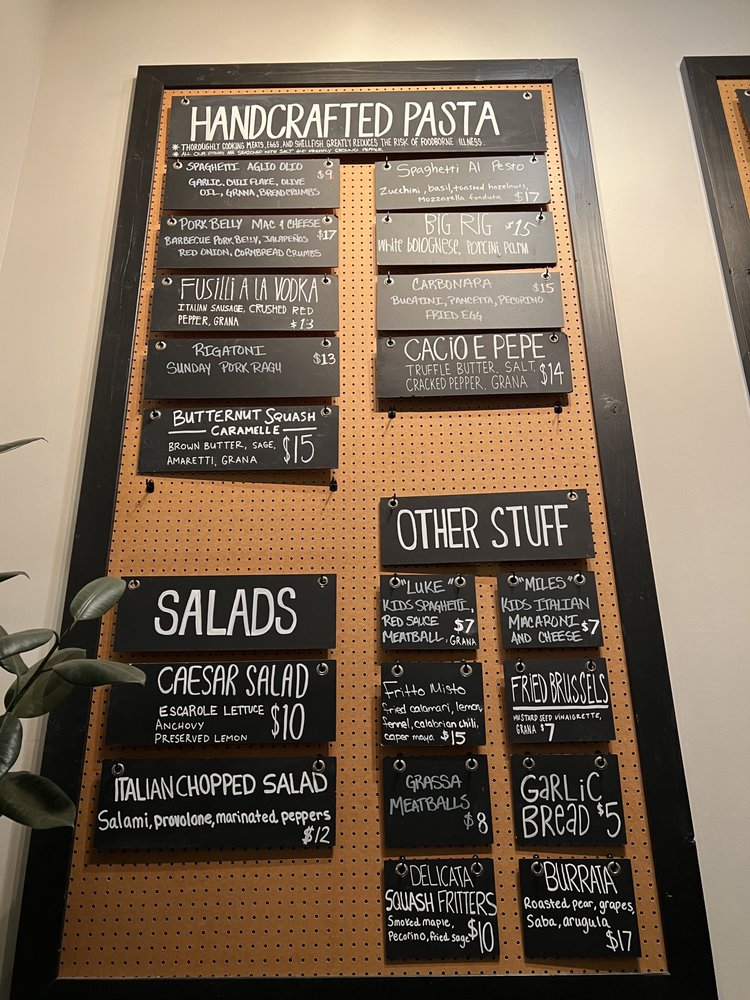 HANDCRAFTED PASTA
* THOROUGHLY COOKING MEATS, EGGS, AND SHELLFISH GREATLY REDUCES THE RISK OF FOODBORNE ILLNESS.
* ALL OUR ITEMS ARE SEASONED WITH SALT AND FRESHLY GROUND PEPPER
SPAGHETTI AGLIO OLIO $9
GARLIC, CHILI FLAKE, OLIVE
OIL, GRANA, BREADCRUMBS
PORK BELLY MAC & CHEESE
BARBECUE PORK BELLY, JALAPEÑOS $17
RED ONION, CORNBREAD CRUMBS
FUSILLI A LA VODKA
ITALIAN SAUSAGE, CRUSHED RED
PEPPER, GRANA $13
RIGATONI $13
SUNDAY PORK RAGU
BUTTERNUT SQUASH
CARAMELLE
BROWN BUTTER, SAGE,
AMARETTI, GRANA $15
Spaghetti Al Pesto
Zucchini, basil, toasted hazelnuts,
Mozzarella fonduta $17
BIG RIG $15
White bolognese, Porcini, Parm
CARBONARA $15
BUCATINI, PANCETTA, PECORINO
FRIED EGG
CACIO E PEPE
TRUFFLE BUTTER, SALT,
CRACKED PEPPER, GRANA $14
SALADS
CAESAR SALAD
ESCAROLE LETTUCE
ANCHOVY $10
PRESERVED LEMON
ITALIAN CHOPPED SALAD
Salami, provolone, marinated peppers
$12
OTHER STUFF
"LUKE"
KIDS SPAGHETTI,
RED SAUCE $7
MEATBALL, GRANA
"MILES"
KIDS ITALIAN
MACARONI
AND CHEESE $7
Fritto Misto
fried calamari, lemon,
fennel, calabrian chili,
caper mayo $15
FRIED BRUSSELS
MUSTARD SEED VINAIGRETTE,
GRANA $7
GRASSA
MEATBALLS
$8
GARLIC
BREAD $5
DELICATA
SQUASH FRITTERS
Smoked maple,
Pecorino, fried sage $10
BURRATA
Roasted pear, grapes,
Saba, arugula
$17